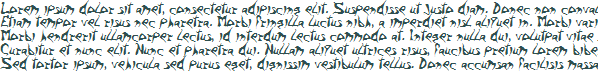 Lorem ipsum dolor sit amet, consectetur adipiscing elit. Suspendisse ut justo diam. Donec non conva
Etiam tempor vel risus nec pharetra. Morbi fringilla luctus nibh, a imperdiet nisl aliquet in. Morbi vari
Morbi hendrerit ullamcorper lectus, id interdum lectus commodo at. Integer nulla dui, volutpat vitae
Curabitur et nunc elit. Nunc et pharetra dui. Nullam aliquet ultrices risus, faucibus pretium lorem bibe
Sed tortor ipsum, vehicula sed purus eget, dignissim vestibulum tellus. Donec accumsan facilisis massa